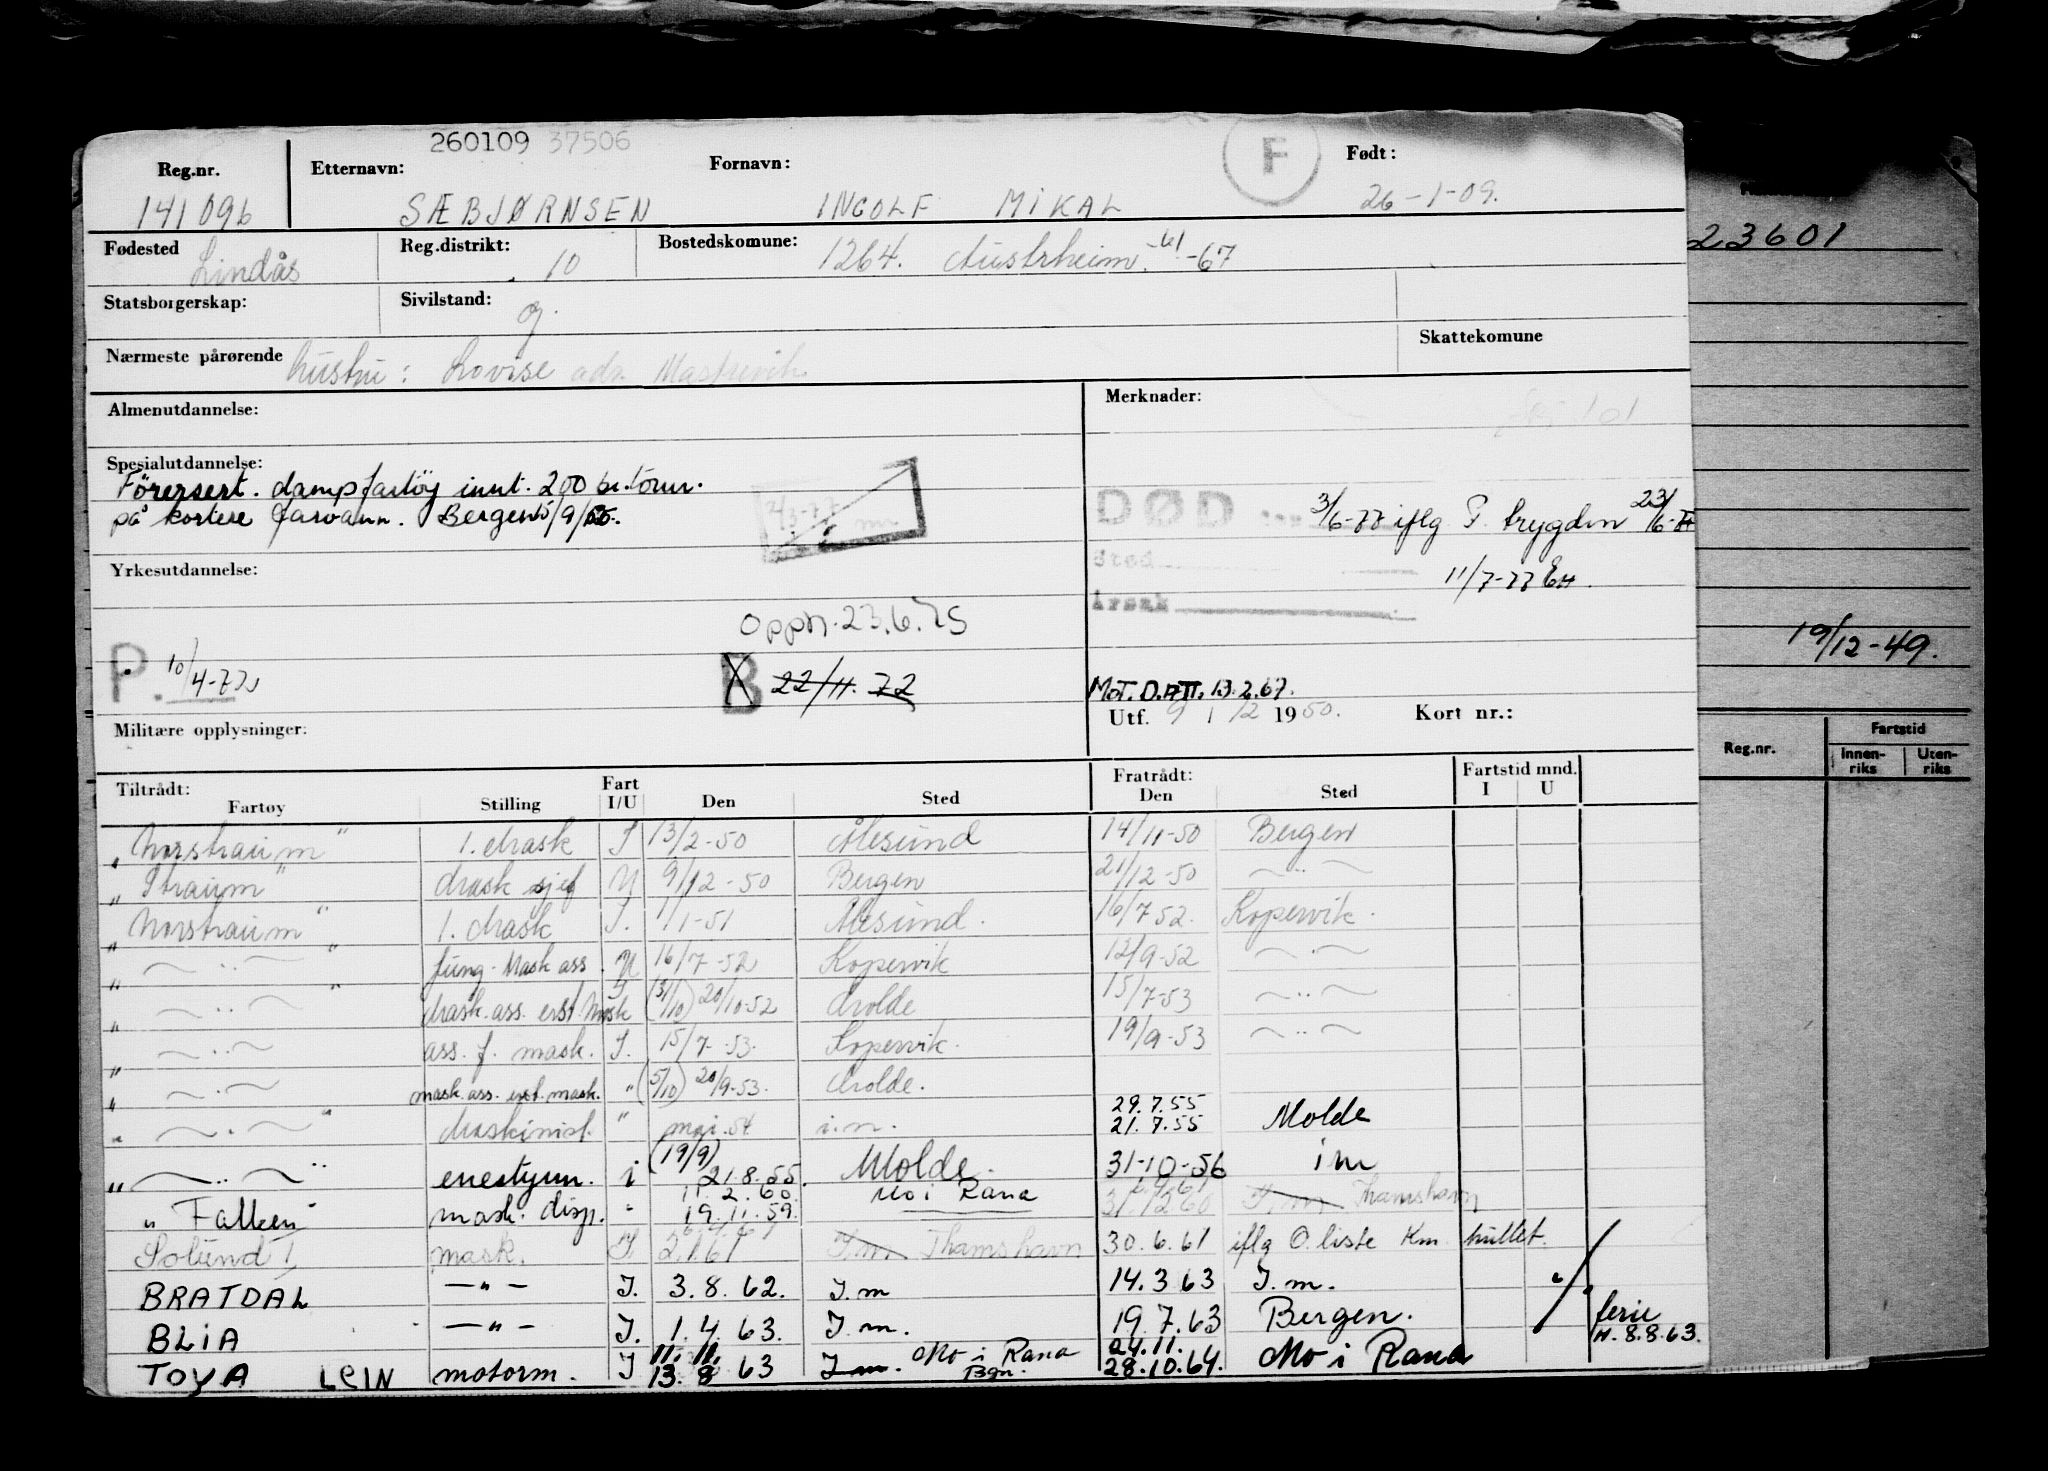 260109 37506
Reg.nr. Etternavn: Fornavn: F Født:
141096 SÆBJØRNSEN INGOLF MIKAL 26-1-09.
Fødested Lindås Reg.distrikt: 10 Bostedskomune: 1264. Austrheim. -61 -67
23601
Statsborgerskap: Sivilstand: g.
Nærmeste pårørende hustru: Lovise adr. Mastrevik Skattekomune
Almenutdannelse: Merknader:
101
Spesialutdannelse:
Förersert. dampfartöy innt. 200 br. tonn.
på kortere farvann. Bergen
DØD 3/6-77 iflg P. trygden 23/6-77
Sted 11/7-77 EH.
Yrkesutdannelse: Årsak
Oppn. 23.6.75
19/12-49.
P. 10/4-72 B 22/11. 72
MOT. D.ATT. 13.2.67.
Utf. 9 / 12 1950. Kort nr.:
Militære opplysninger:
Reg.nr. Fartstid
Innenriks Utenriks
Tiltrådt: Fratrådt: Fartstid mnd.
Fartøy Stilling Fart I/U Den Sted Den Sted I U
"Norstraum" 1. Mask I 13/2-50 Ålesund 14/11-50 Bergen
"Straum" Mask sjef U 9/12-50 Bergen 21/12-50 —"—
"Norstraum" 1. Mask I. 1/1-51 Ålesund. 16/7 52. Kopervik.
" —"— " fung. Mask ass. U 16/7-52 Kopervik 12/9-52 —"—
" —"— " Mask. ass. erst. Mask I (31/10) 20/10-52 Molde 15/7-53 —"—
" —"— ass. f. mask. I. 15/7-53. Kopervik. 19/9-53 —"—
" —"— mask. ass. erst. mask. " (5/10) 20/9-53. Molde.
29.7.55
" —"— " Maskinist. " mai 54 i.m. 21.7.55 Molde
" —"— " enestyrm. i (19/9) 21.8.55. Molde. 31-10-56 im
11. 2. 60. Mo i Rana
"Falken" mask. disp. " 19. 11. 59. 31.12 60 I.m Thamshavn
Solund I mask. I. 2.1 61 I.m Thamshavn 30.6.61 iflg O. liste Km. hullet.
BRATDAL —"— I. 3. 8. 62. I.m 14. 3 63 I.m.
BLIA —"— I. 1. 4. 63. I.m. 19. 7. 63 Bergen. ferie
H. 8.8.63.
11. 11. Mo i Rana 24.11.
TOYA LEIN motorm. I 13. 8 63 I.m. Bgn. 28.10.64. Mo i Rana